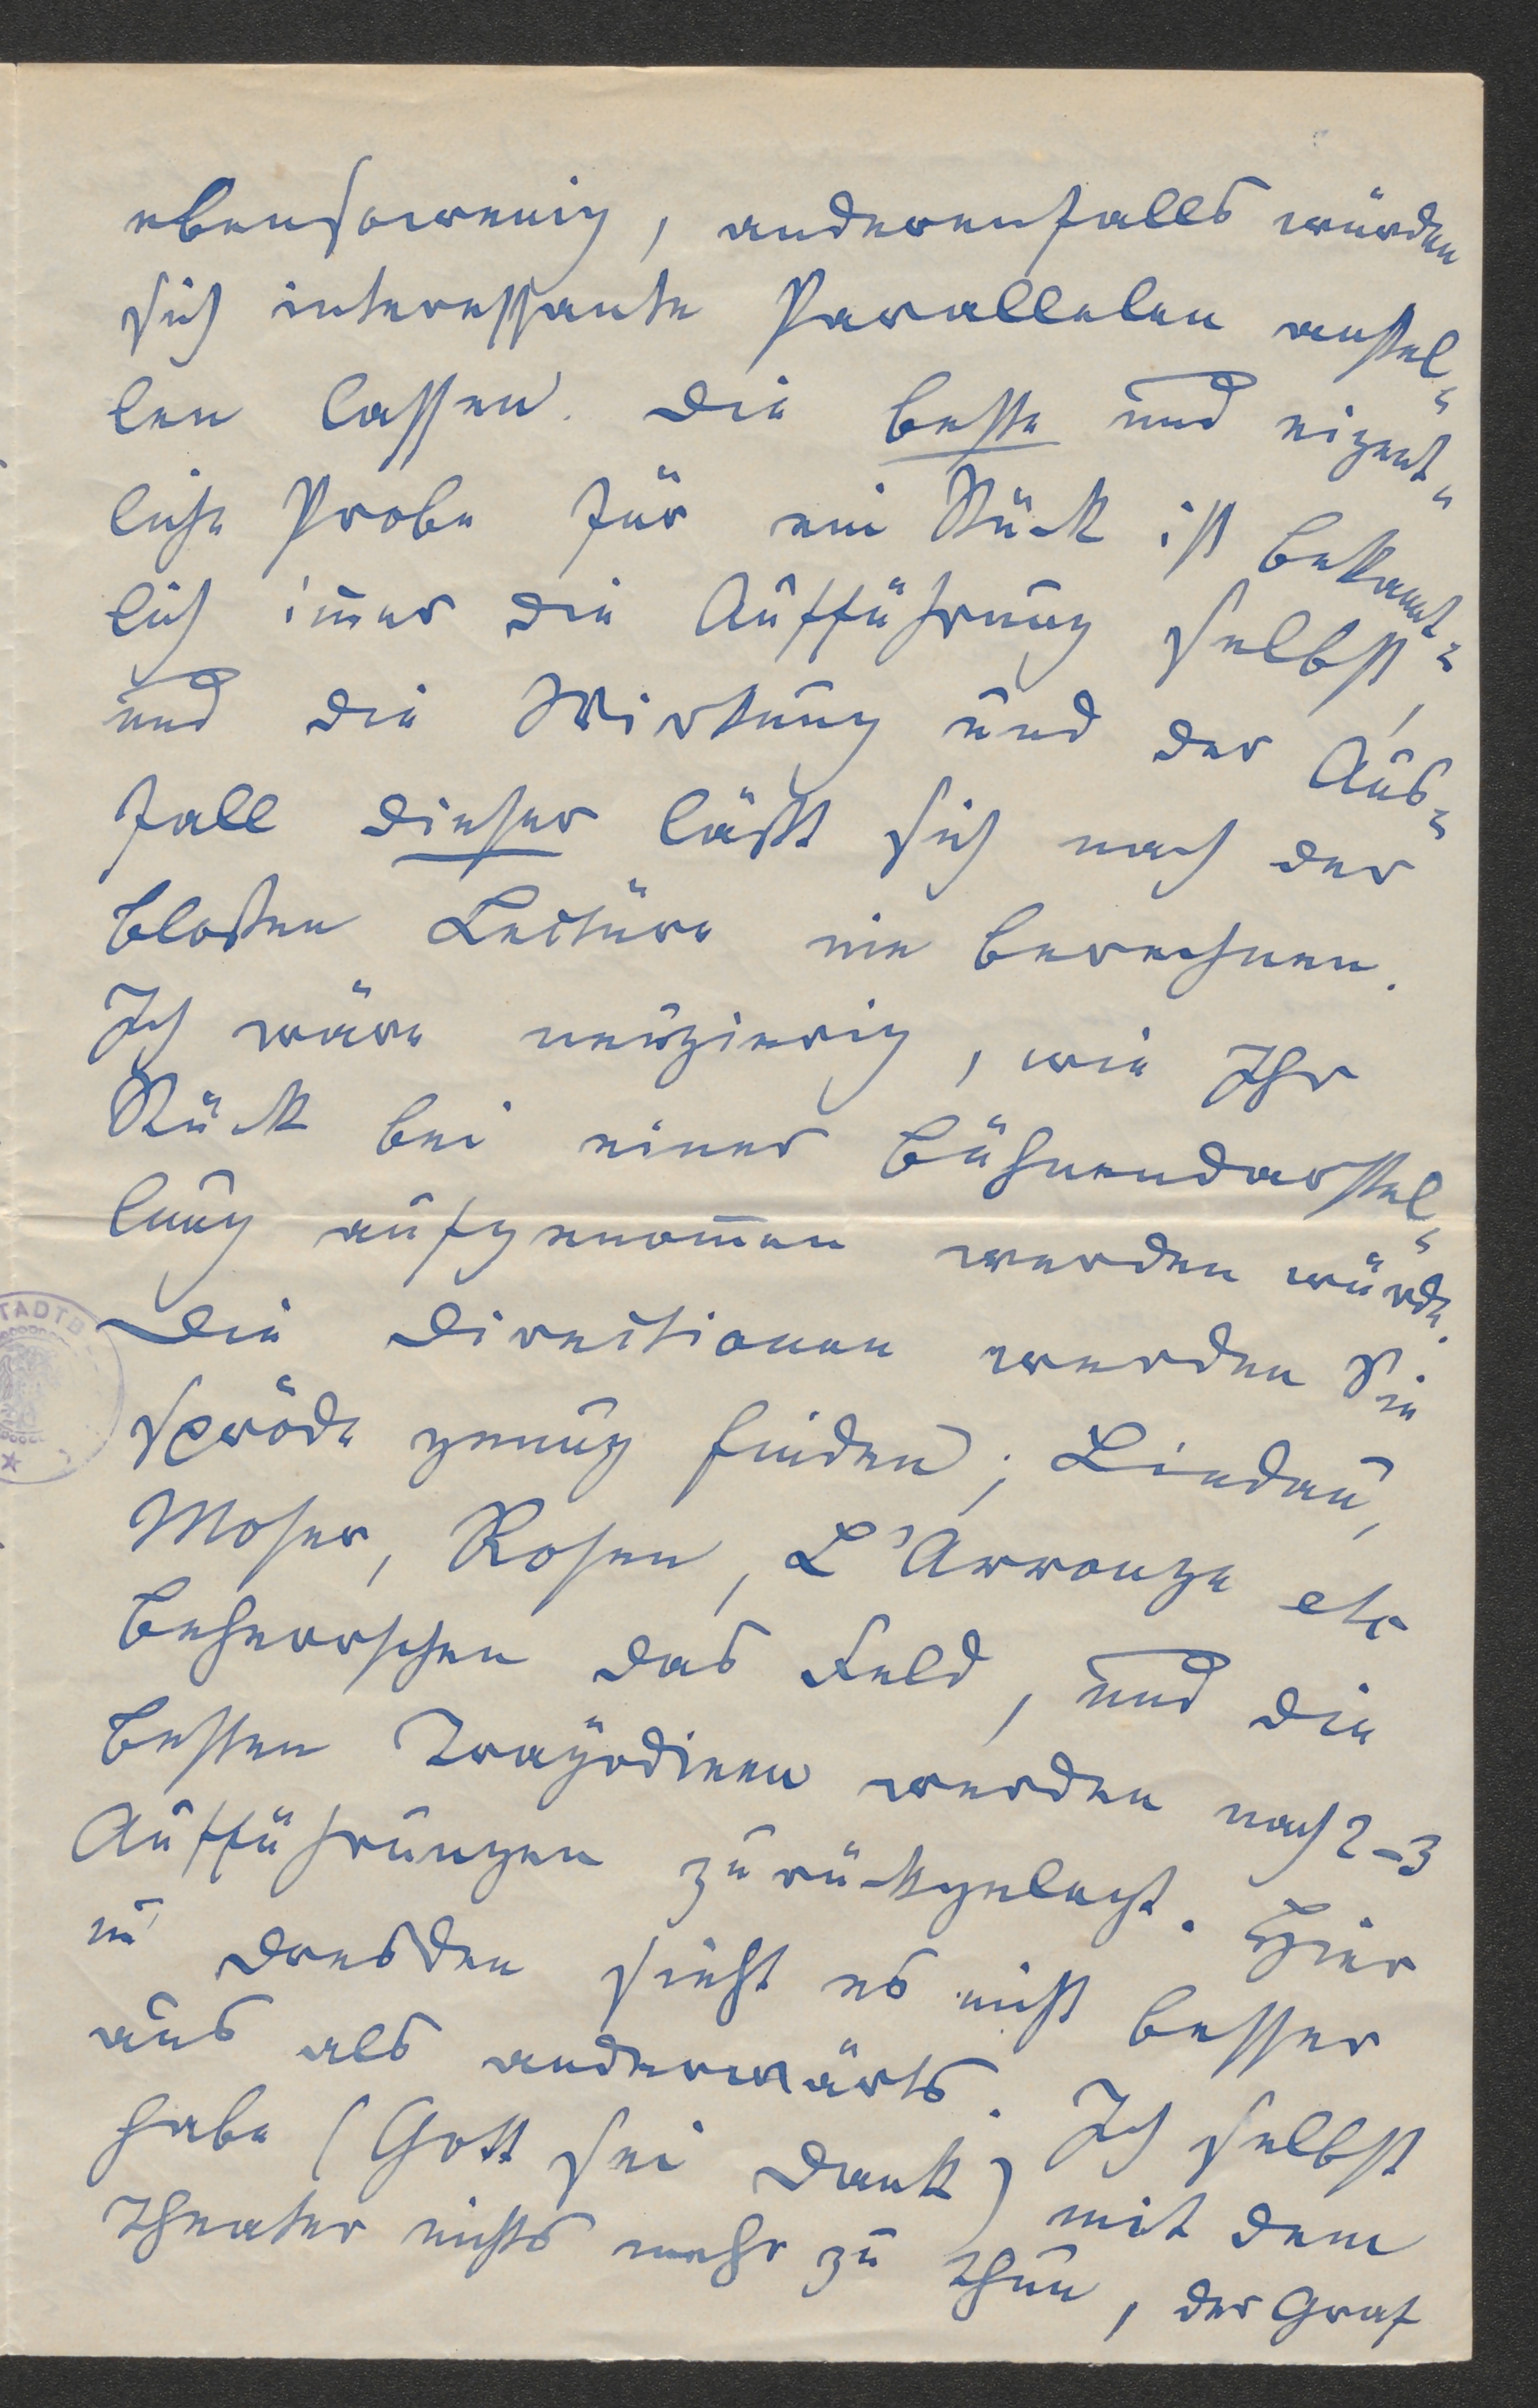 ebensowenig, anderenfalls würden
sich interessante Parallelen anstel-
len lassen. Die beste und eigent-
liche Probe für ein Stück ist bekannt-
lich im̅er die Aufführung selbst,
und die Wirkung und der Aus-
fall dieser läßt sich nach der
bloßen Lectüre nie berechnen.
Ich wäre neugierig, wie Ihr
Stück bei einer Bühnendarstel-
lung aufgenom̅en werden würde.
Die Directionen werden Sie
spröde genug finden; Lindau,
Moser, Rosen, L'Arronge etc
beherrschen das Feld, und die
besten Tragödieen werden nach 2-3
Aufführungen zurückgelegt. Hier
in Dresden sieht es nicht besser
aus als anderwärts. Ich selbst
habe (Gott sei Dank) mit dem
Theater nichts mehr zu thun, der Graf
TADTB